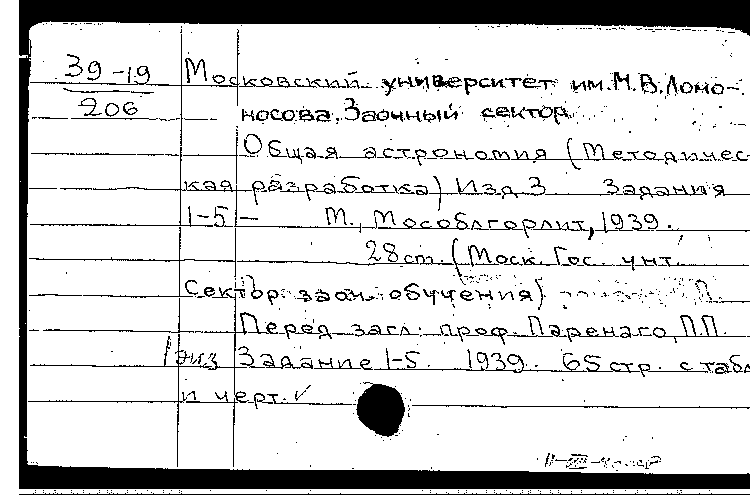 39-19
206
Московский университет им. М.В. Ломо-
носова. Заочный сектор.
Общая астрономия (Методичес
кая разработка) Изд. 3 Задания
1-5 – М., Мособлгорлит, 1939.
28 ст. (Моск. Гос. унт.
Сектор заоч. обучения)
Перед загл: проф. Паренаго, П.П.
1 экз Задание 1-5. 1939. 65 стр. с табл
и черт. ✓